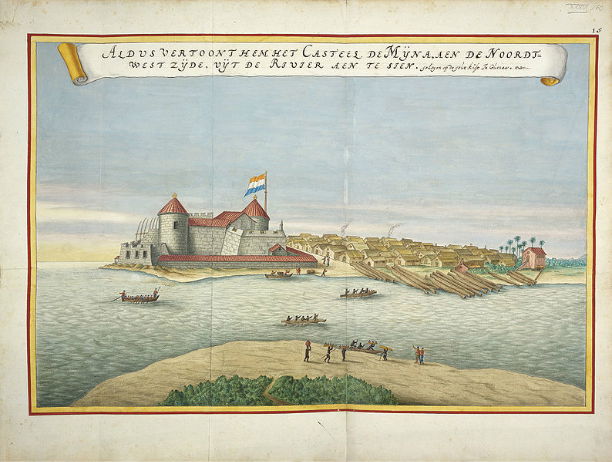 15
ALDVS VERTOONT HEM HET CASTEEL DE MŸNA, AEN DE NOORDT-
WEST ZŸDE, VŸT DE RIVIER AEN TE SIEN,